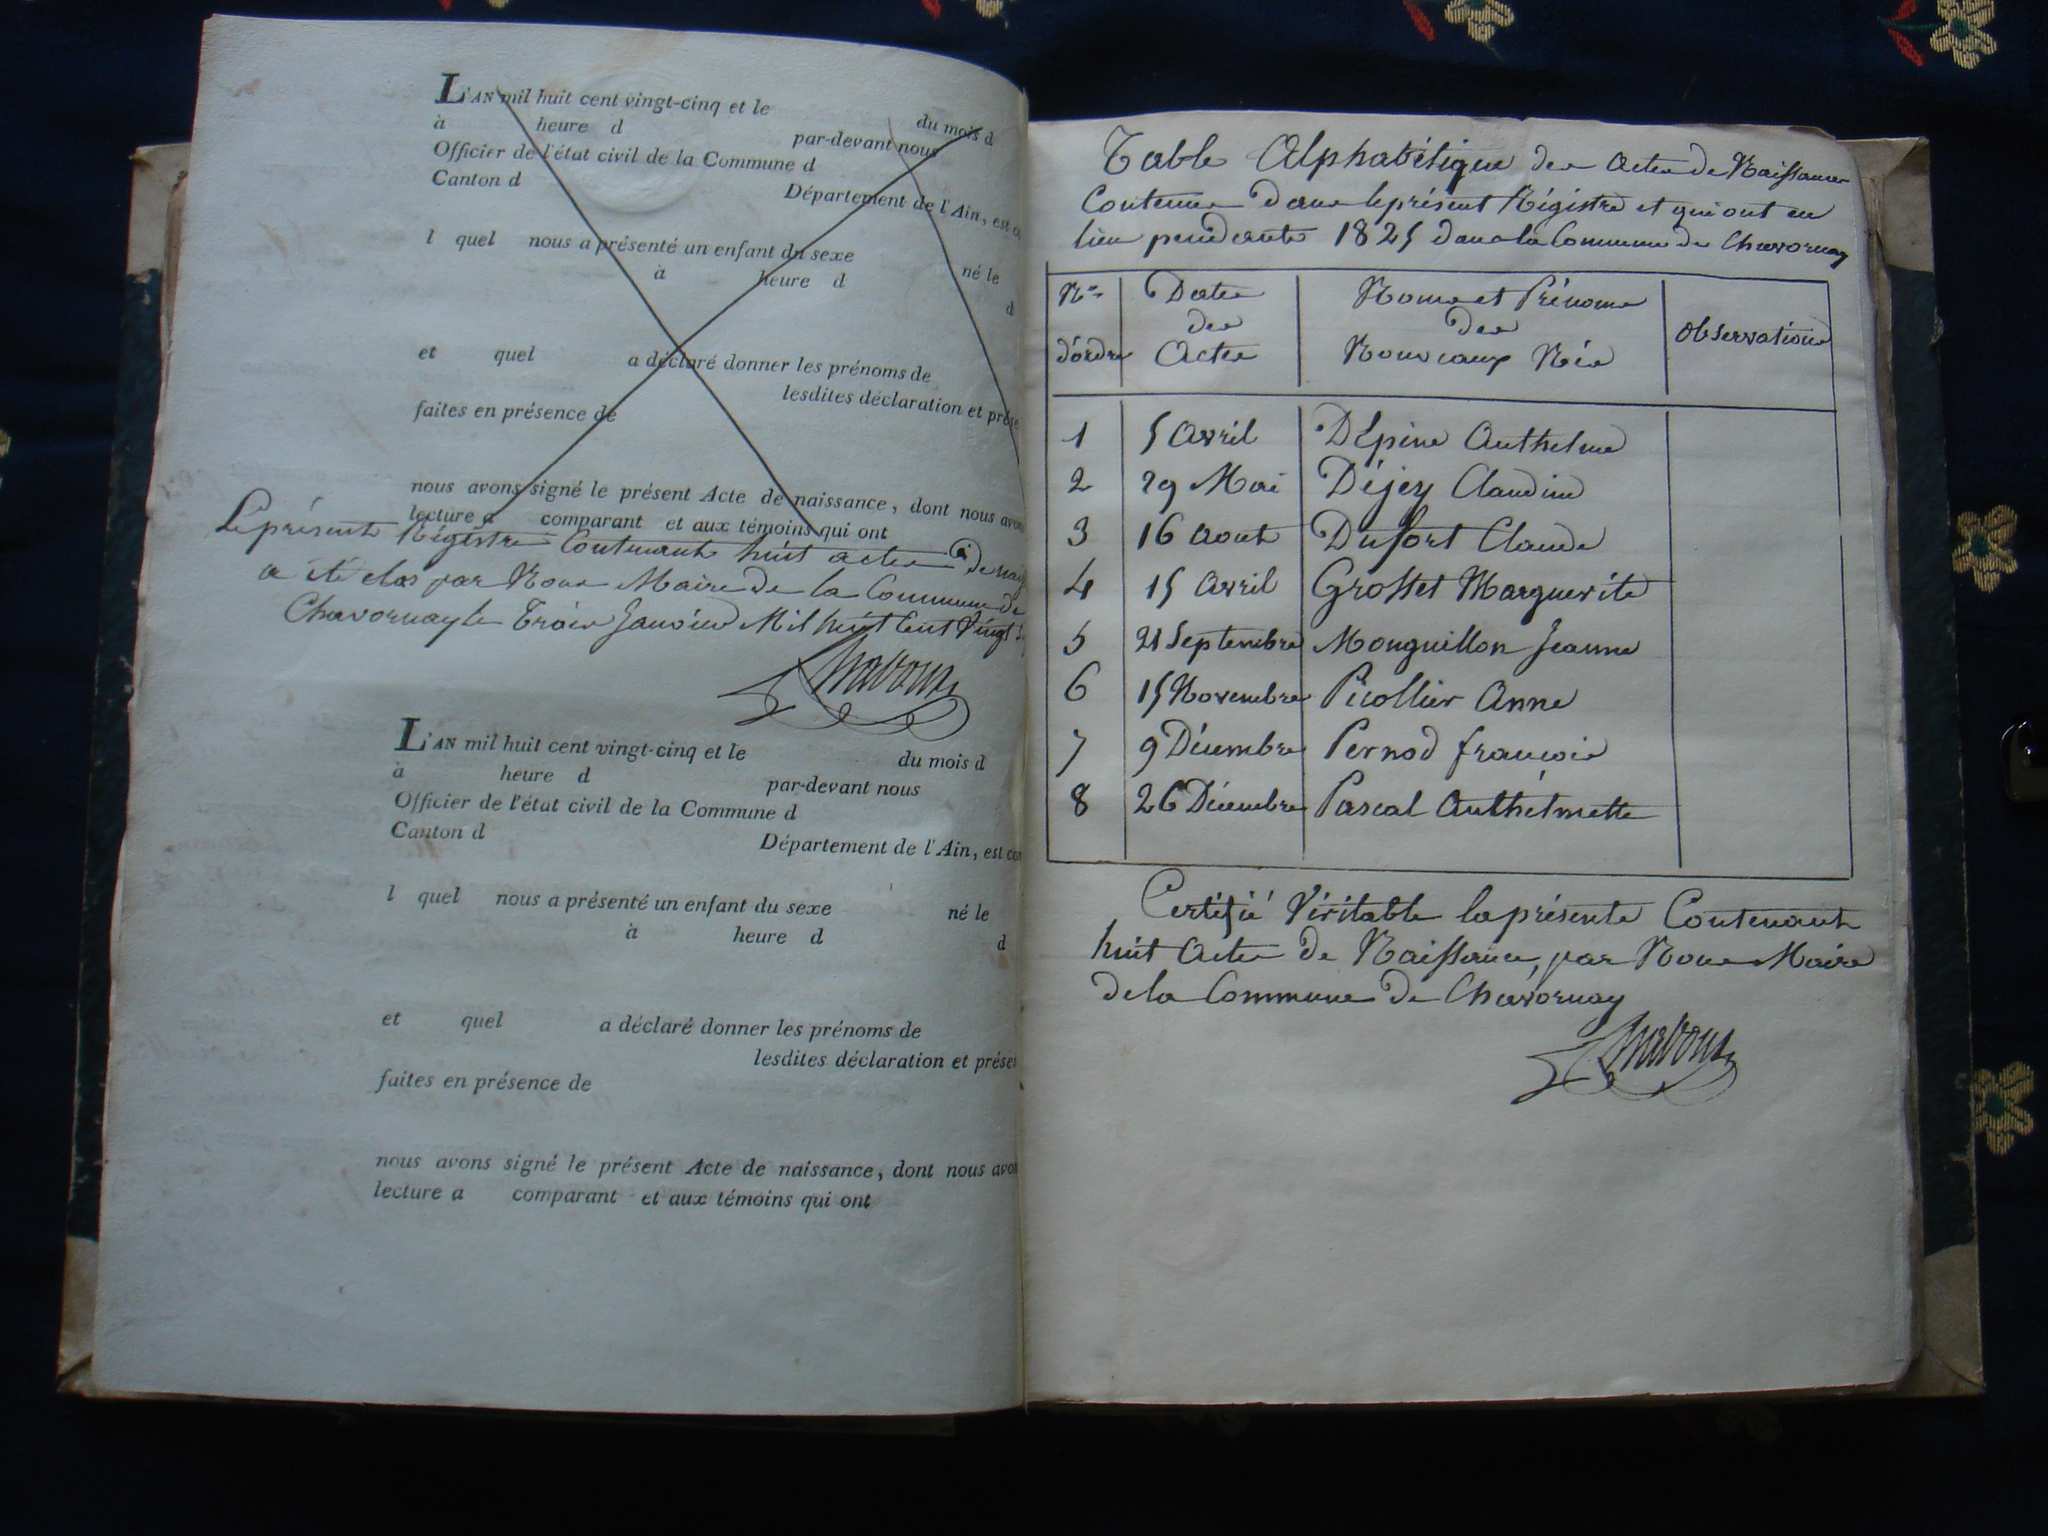 L'AN mil huit cent vingt-cinq et le du mois d
à heure d par-devant nous
Officier de l'état civil de la Commune d
Canton d Département de l'Ain, est
l quel nous a présenté un enfant du sexe né le
à heure d
d
et quel a déclaré donner les prénoms de
lesdites déclaration et prése
faites en présence de
nous avons signé le présent Acte de naissance, dont nous avons
lecture a comparant et aux témoins qui ont
Le présent Régistre Contenant huit actes de
a été clos par Nous Maire de la Commune de
Chavornay le Trois Janvier Mil huit Cent Vingt
L'AN mil huit cent vingt-cinq et le du mois d
à heure d par-devant nous
Officier de l'état civil de la Commune d
Canton d Département de l'Ain, est com
l quel nous a présenté un enfant du sexe né le
à heure d
d
et quel a déclaré donner les prénoms de
lesdites déclaration et présen
faites en présence de
nous avons signé le présent Acte de naissance, dont nous avon
lecture a comparant et aux témoins qui ont
Table Alphabétique des actes de Naissances
Contenus dans le présent Régistre et qui ont eu
lieu pendante 1825 dans la Commune de Chavornay
Nos d'ordre Dates des Actes Noms et Prénoms des Nouveaux Nés Observations
1 5 Avril Dépine Anthelme
2 29 Mai Déjey Claudine
3 16 Aout Dufort Claude
4 15 Avril Grosset Marguerite
5 21 Septembre Monguillon Jeanne
6 15 Novembre Picollier Anne
7 9 Décembre Pernod françois
8 26 Décembre Pascal Anthelmette
Certifié Véritable la présente Contenant
huit Actes de Naissance, par Nous Maire
de la Commune de Chavornay